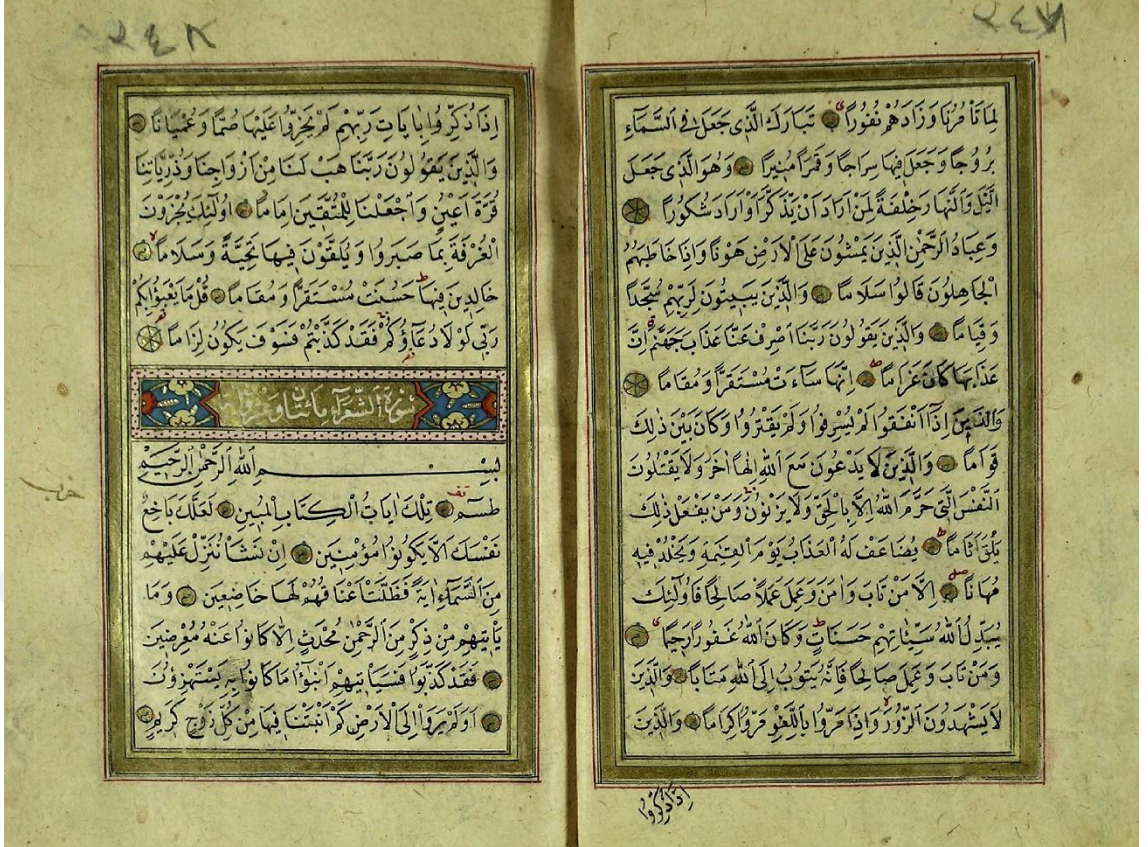 ٢٤٧
لِمَا تَأْمُرُنَا وَزَادَهُمْ نُفُورًا تَبَارَكَ الَّذِى جَعَلَ فِى السَّمَآءِ
بُرُوجًا وَجَعَلَ فِيهَا سِرَاجًا وَقَمَرًا مُنِيرًا وَهُوَ الَّذِى جَعَلَ
الَّيْلَ وَالنَّهَارَ خِلْفَةً لِمَنْ اَرَادَ اَنْ يَذَّكَّرَ اَوْ اَرَادَ شُكُورًا
وَعِبَادُ الرَّحْمٰنِ الَّذِينَ يَمْشُونَ عَلَى الْاَرْضِ هَوْنًا وَاِذَا خَاطَبَهُمُ
الْجَاهِلُونَ قَالُوا سَلَامًا وَالَّذِينَ يَبِيتُونَ لِرَبِّهِمْ سُجَّدًا
وَقِيَامًا وَالَّذِينَ يَقُولُونَ رَبَّنَا اصْرِفْ عَنَّا عَذَابَ جَهَنَّمَ اِنَّ
عَذَابَهَا كَانَ غَرَامًا اِنَّهَا سَآءَتْ مُسْتَقَرًّا وَمُقَامًا
وَالَّذِينَ اِذَآ اَنْفَقُوا لَمْ يُسْرِفُوا وَلَمْ يَقْتُرُوا وَكَانَ بَيْنَ ذٰلِكَ
قَوَامًا وَالَّذِينَ لَا يَدْعُونَ مَعَ اللّٰهِ اِلٰهًا اٰخَرَ وَلَا يَقْتُلُونَ
النَّفْسَ الَّتِى حَرَّمَ اللّٰهُ اِلَّا بِالْحَقِّ وَلَا يَزْنُونَ وَمَنْ يَفْعَلْ ذٰلِكَ
يَلْقَ اَثَامًا يُضَاعَفْ لَهُ الْعَذَابُ يَوْمَ الْقِيٰمَةِ وَيَخْلُدْ فِيهِ
مُهَانًا اِلَّا مَنْ تَابَ وَاٰمَنَ وَعَمِلَ عَمَلًا صَالِحًا فَاُولٰٓئِكَ
يُبَدِّلُ اللّٰهُ سَيِّاٰتِهِمْ حَسَنَاتٍ وَكَانَ اللّٰهُ غَفُورًا رَحِيمًا
وَمَنْ تَابَ وَعَمِلَ صَالِحًا فَاِنَّهُ يَتُوبُ اِلَى اللّٰهِ مَتَابًا وَالَّذِينَ
لَا يَشْهَدُونَ الزُّورَ وَاِذَا مَرُّوا بِاللَّغْوِ مَرُّوا كِرَامًا وَالَّذِينَ
اِذَا ذُكِّرُوا
٢٤٨
اِذَا ذُكِّرُوا بِاٰيَاتِ رَبِّهِمْ لَمْ يَخِرُّوا عَلَيْهَا صُمًّا وَعُمْيَانًا
وَالَّذِينَ يَقُولُونَ رَبَّنَا هَبْ لَنَا مِنْ اَزْوَاجِنَا وَذُرِّيَّاتِنَا
قُرَّةَ اَعْيُنٍ وَاجْعَلْنَا لِلْمُتَّقِينَ اِمَامًا اُولٰٓئِكَ يُجْزَوْنَ
الْغُرْفَةَ بِمَا صَبَرُوا وَيُلَقَّوْنَ فِيهَا تَحِيَّةً وَسَلَامًا
خَالِدِينَ فِيهَا حَسُنَتْ مُسْتَقَرًّا وَمُقَامًا قُلْ مَا يَعْبَؤُا بِكُمْ
رَبِّى لَوْلَا دُعَآؤُكُمْ فَقَدْ كَذَّبْتُمْ فَسَوْفَ يَكُونُ لِزَامًا
سُورَةُ الشُّعَرَآءِ مِائَتَانِ وَ
بِسْمِ اللّٰهِ الرَّحْمٰنِ الرَّحِيمِ
طٰسٓمٓ تِلْكَ اٰيَاتُ الْكِتَابِ الْمُبِينِ لَعَلَّكَ بَاخِعٌ
نَفْسَكَ اَلَّا يَكُونُوا مُؤْمِنِينَ اِنْ نَشَأْ نُنَزِّلْ عَلَيْهِمْ
مِنَ السَّمَآءِ اٰيَةً فَظَلَّتْ اَعْنَاقُهُمْ لَهَا خَاضِعِينَ وَمَا
يَأْتِيهِمْ مِنْ ذِكْرٍ مِنَ الرَّحْمٰنِ مُحْدَثٍ اِلَّا كَانُوا عَنْهُ مُعْرِضِينَ
فَقَدْ كَذَّبُوا فَسَيَأْتِيهِمْ اَنْبٰٓؤُا مَا كَانُوا بِهِ يَسْتَهْزِؤُنَ
اَوَلَمْ يَرَوْا اِلَى الْاَرْضِ كَمْ اَنْبَتْنَا فِيهَا مِنْ كُلِّ زَوْجٍ كَرِيمٍ